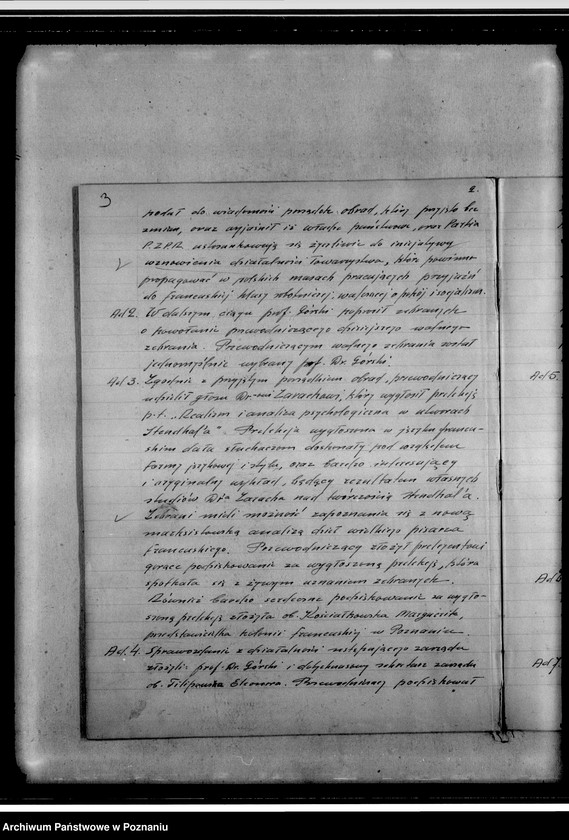 3
2.
podał do wiadomości porządek obrad, który przyjęto bez
zmian, oraz wyjaśnił iż władze państwowe, oraz Partia
P.Z.P.R. ustosunkowują się życzliwie do inicjatywy
wznowienia działalności Towarzystwa, które powinno
propagować w polskich masach pracujących przyjaźń
do francuskiej klasy robotniczej, walczącej o pokój i socjalizm.
Ad 2. W dalszym ciągu prof. Górski poprosił zebranych
o powołanie przewodniczącego dzisiejszego walnego
zebrania. Przewodniczącym walnego zebrania został
jednomyślnie wybrany prof. Dr. Górski.
Ad 3. Zgodnie z przyjętym porządkiem obrad, przewodniczący
udzielił głosu Dr-owi Zarachowi, który wygłosił prelekcję
p.t. „Realizm i analiza psychologiczna w utworach
Stendhal'a”. Prelekcja wygłoszona w języku francu-
skim dała słuchaczom doskonały pod względem
formy językowej i stylu, oraz bardzo interesujący
i oryginalny wykład, będący rezultatem własnych
studiów Dra Zaracha nad twórczością Stendhal'a.
Zebrani mieli możność zapoznania się z nową
marksistowską analizą dzieł wielkiego pisarza
francuskiego. Przewodniczący złożył prelegentowi
gorące podziękowanie za wygłoszoną prelekcję, która
spotkała się z żywym uznaniem zebranych.
Również bardzo serdeczne podziękowanie za wygło-
szoną prelekcję złożyła ob. Kościałkowska Margueritte,
przedstawicielka kolonii francuskiej w Poznaniu.
Ad. 4. Sprawozdanie z działalności ustępującego zarządu
złożyli: prof. Dr. Górski i dotychczasowy sekretarz zarządu
ob. Filipowska Eleonora. Przewodniczący podziękował
Ad 5.
Ad 6
Ad 7.
Archiwum Państwowe w Poznaniu